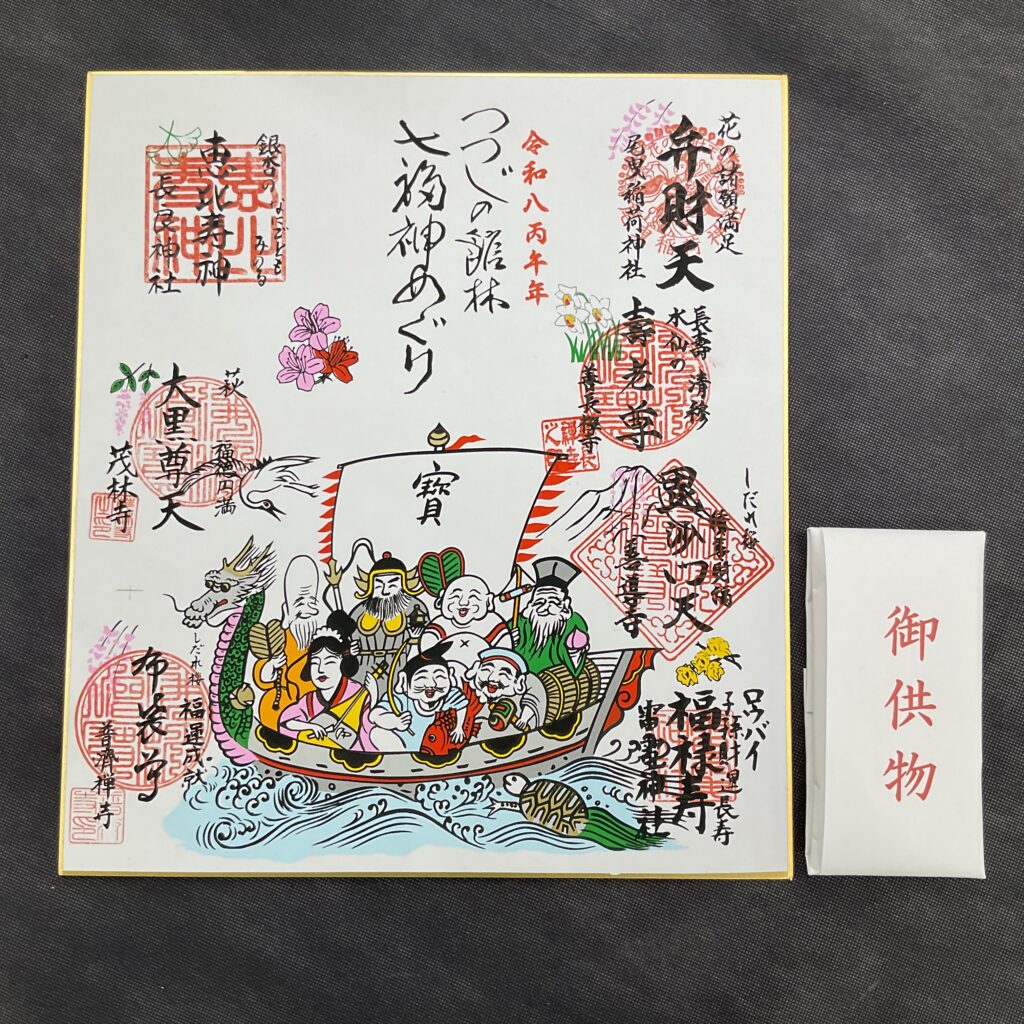 花の諸願満足
弁財天
尾曳稲荷神社
令和八丙午年
つつじの館林
七福神めぐり
銀杏の
みのる
恵比寿神
長良神社
長寿 清修
水仙の
壽老尊
善長禅寺
萩
福徳円満
大黒尊天
茂林寺
寶
しだれ桜
毘沙門天
善導寺
しだれ桜
福運成就
布袋尊
普濟禅寺
ロウバイ
福禄寿
雷電神社
御供物